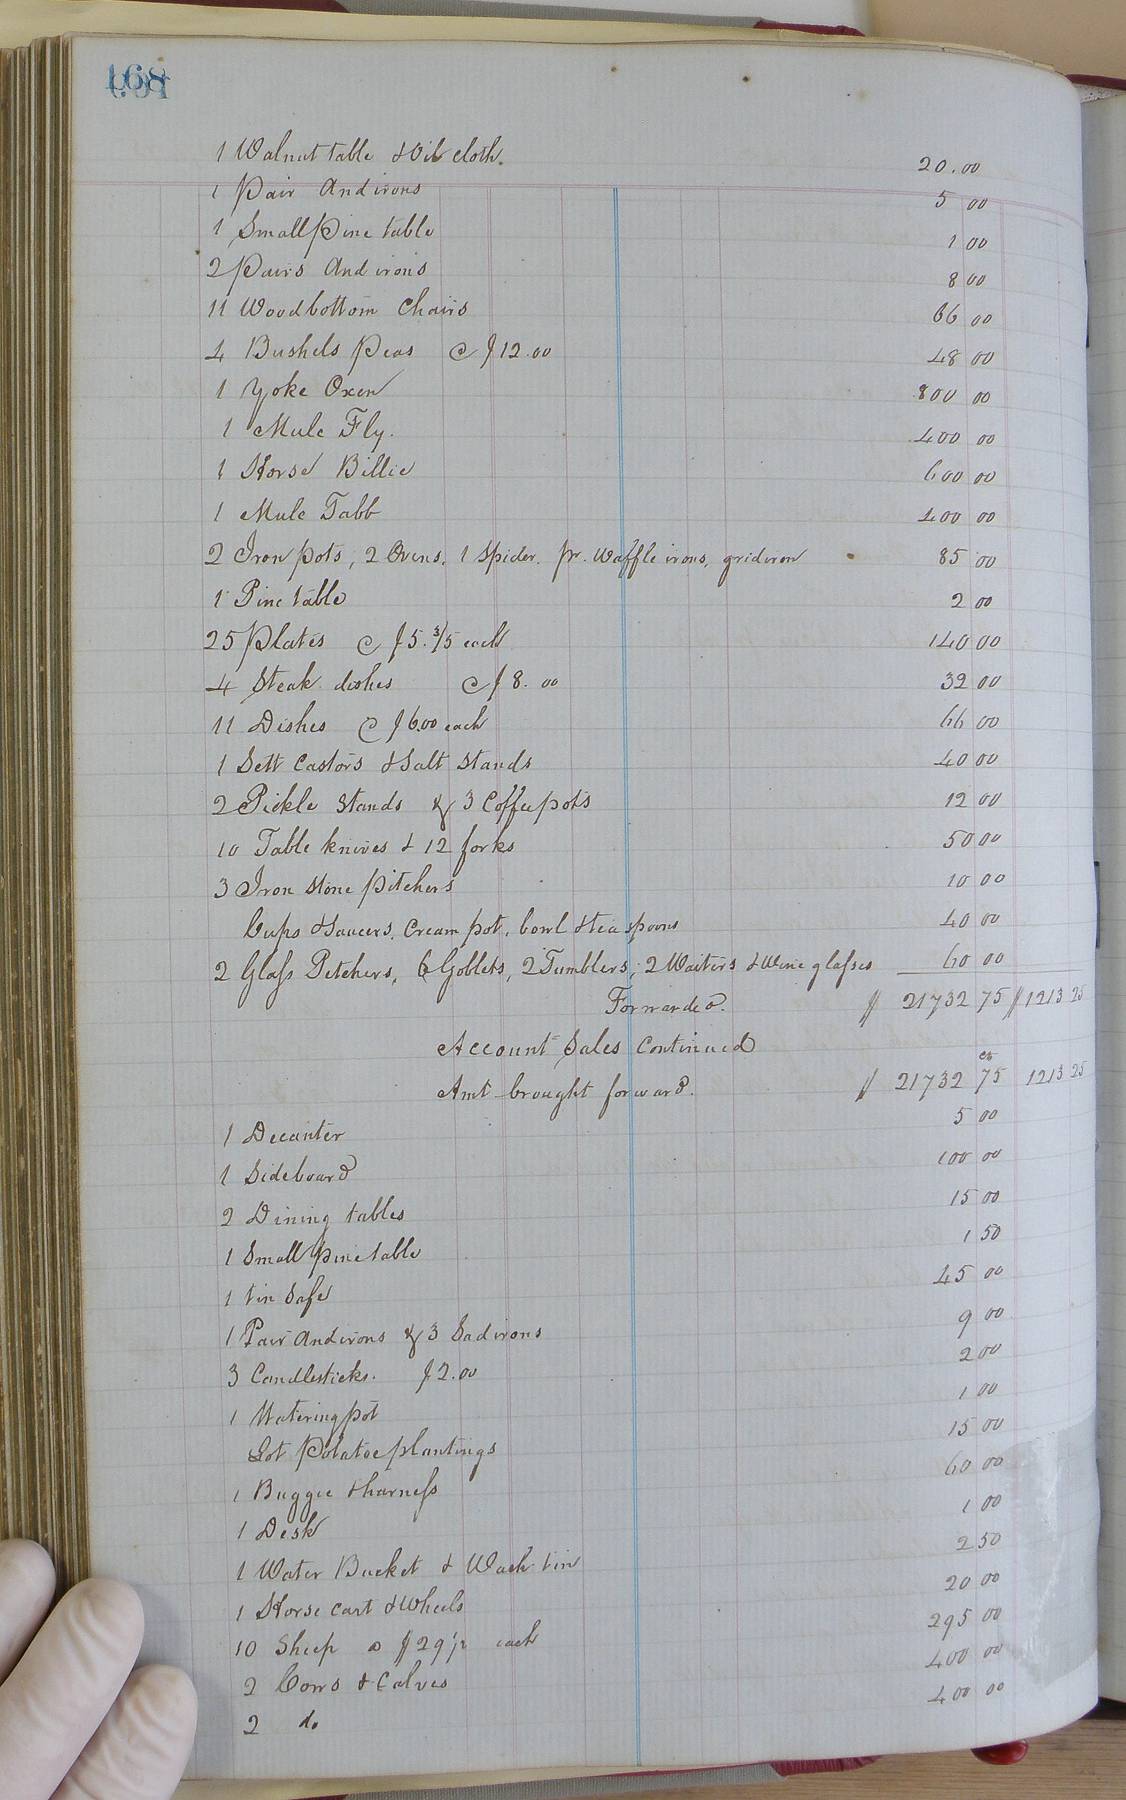 168
1 Walnut table & Oil cloth. 20.00
1 Pair Andirons 5 00
1 Small Pine table 1 00
2 Pairs Andirons 8 00
11 Woodbottom Chairs 66 00
4 Bushels Peas @ $12.00 48 00
1 Yoke Oxen 800 00
1 Mule Fly. 400 00
1 Horse Billie 600 00
1 Mule Tabb 400 00
2 Iron pots, 2 Ovens, 1 Spider. pr. Waffle irons, gridiron 85 00
1 Pine table 2 00
25 Plates @ $5.3/5 each 140 00
4 Steak dishes @ $8.00 32 00
11 Dishes @ $6.00 each 66 00
1 Sett Castors & Salt Stands 40 00
2 Pickle Stands & 3 Coffeepots 12 00
10 Table knives & 12 forks 50 00
3 Iron stone pitchers 10 00
Cups & Saucers, Cream pot, bowl & tea spoons 40 00
2 Glass Pitchers, 6 Goblets, 2 Tumblers, 2 Waiters & Wine glasses 60 00
Forwarded. $ 21732 75 $ 1213 25
Account Sales Continued
Amt brought forward. $ 21732 75 1213 25
1 Decanter 5 00
1 Sideboard 100 00
2 Dining tables 15 00
1 Small pine table 1 50
1 tin Safe 45 00
1 Pair andirons & 3 Sadirons 9 00
3 Candlesticks. $2.00 2 00
1 Watering pot 1 00
Lot Potatoe plantings 15 00
1 Buggie & harness 60 00
1 Desk 1 00
1 Water Bucket & Wash tin 2 50
1 Horse cart & Wheels 20 00
10 Sheep @ $29 1/2 each 295 00
2 Cows & Calves 400 00
2 do 400 00